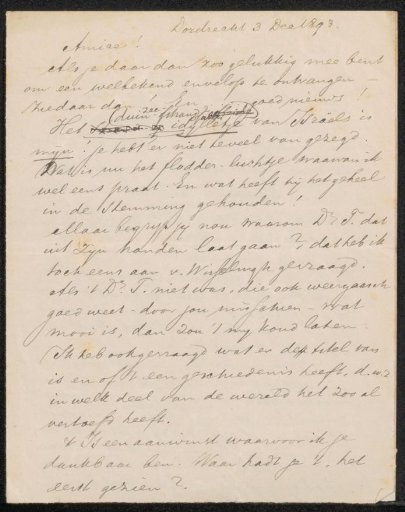 Dordrecht 3 Dec 1893.
Amice!
Als je daar dan zoo gelukkig mee bent
om een welbekend envelop te ontvangen —
ziedaar dan goed nieuws!
duin- zee- strand
Het idylletje van Israels is
mijn! je hebt er niet teveel van gezegd.
Wat is nu het flodder-luchtje waarvan ik
wel eens praat. En wat heeft hij het geheel
in de Stemming gehouden!
Maar begrijp jij nou waarom Dr. T. dat
uit zijn handen laat gaan?, dat heb ik
toch eens aan v. Wisselingh gevraagd.
Als 't Dr. T. niet was, die ook weergaasch
goed weet - door jou misschien - wat
mooi is, dan zou 't mij koud laten.
Ik heb ook gevraagd wat er de titel van
is en of 't een geschiedenis heeft, d.w.z
in welk deel van de wereld het zoo al
vertoefd heeft.
't Is een aanwinst waarvoor ik je
dankbaar ben. Waar hadt je 't het
eerst gezien?